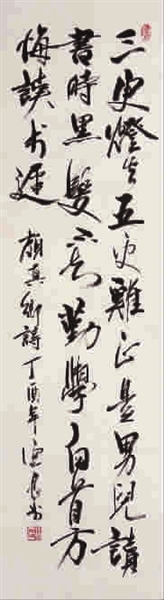 三更燈火五更雞正是男兒讀
書時黑髮不知勤學白首方
悔讀書遲
顏真卿詩丁酉年